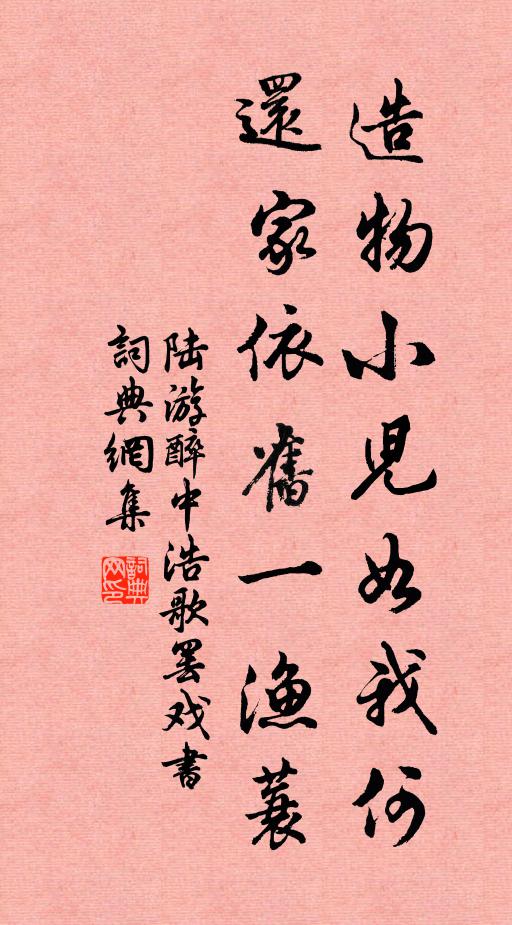 造物小兒如我何
還家依舊一漁蓑
陆游醉中浩歌罢戏書
詞典網集
詞典网印